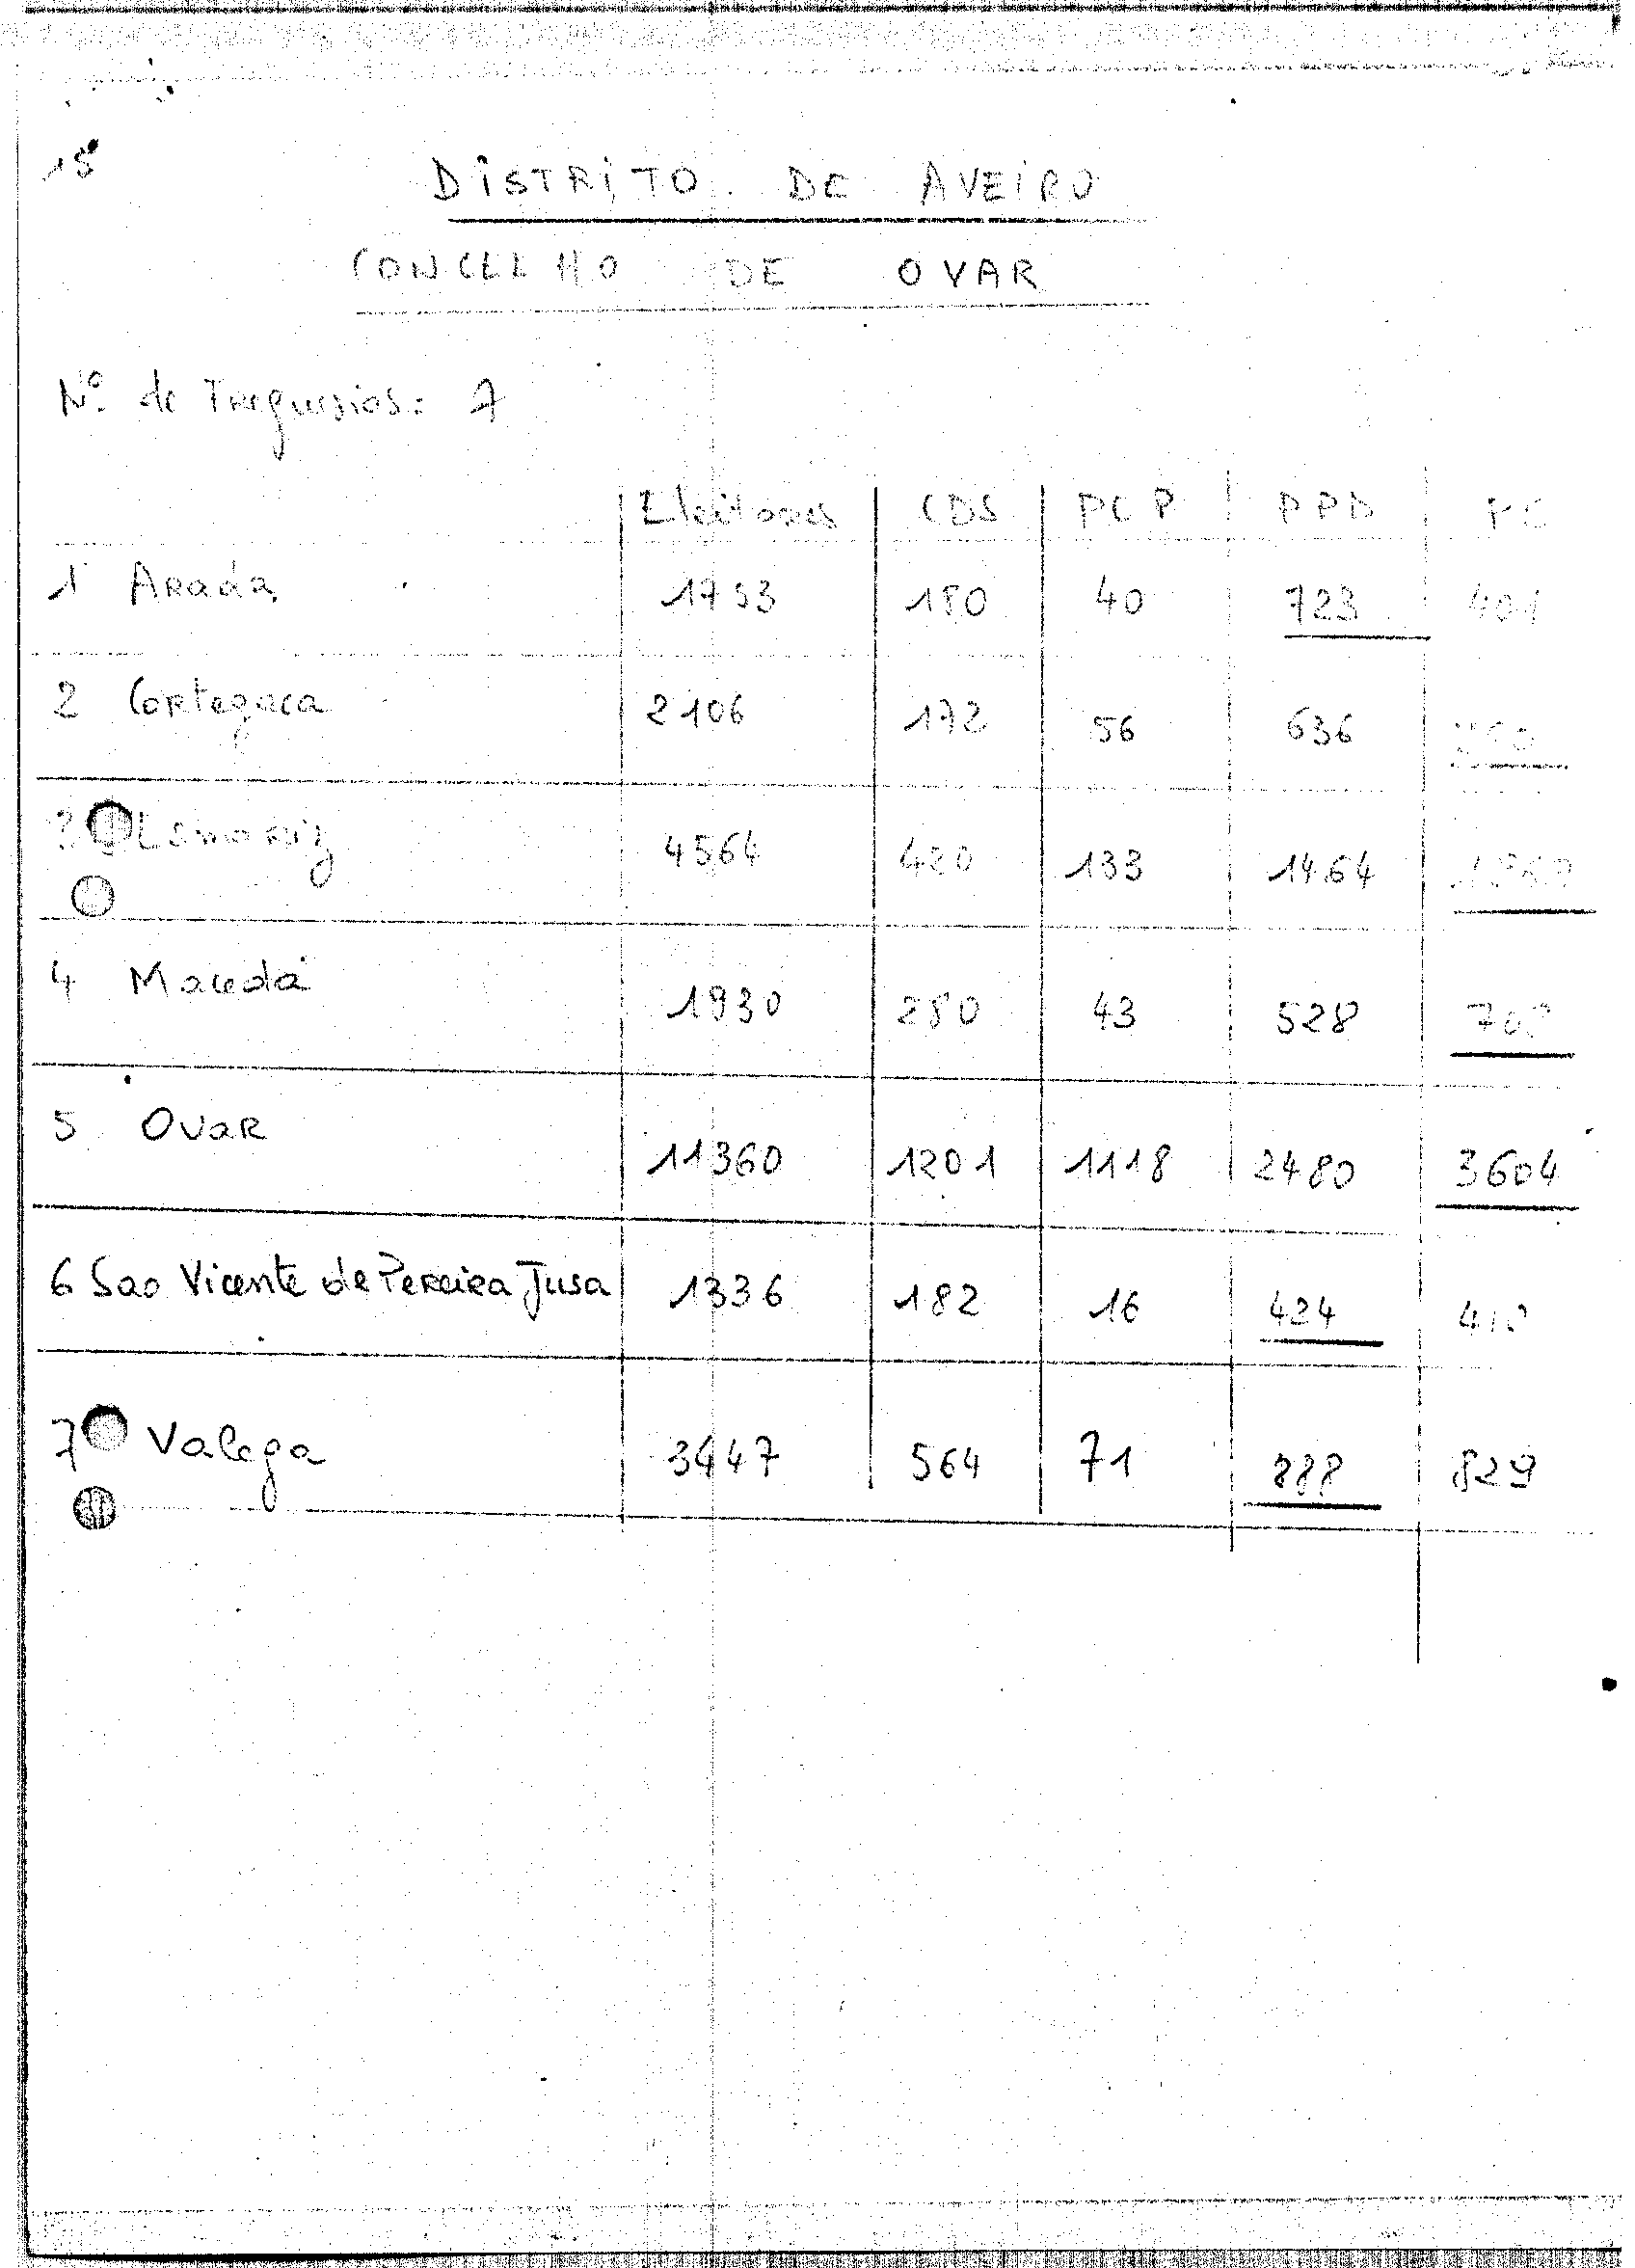 15
DiSTRiTO DE AVEiRO
CONCELHO DE OVAR
Nº. de Freguesias: 7
Eleitores CDS PCP PPD
1 Arada 1753 180 40 723 401
2 Cortegaca 2106 172 56 636
3 Esmoriz 4564 420 133 1464
4 Maceda 1930 280 43 528
5 Ovar 11360 1201 1118 2480 3604
6 Sao Vicente de Pereira Jusa 1336 182 16 424
7 Valega 3447 564 71 888 829